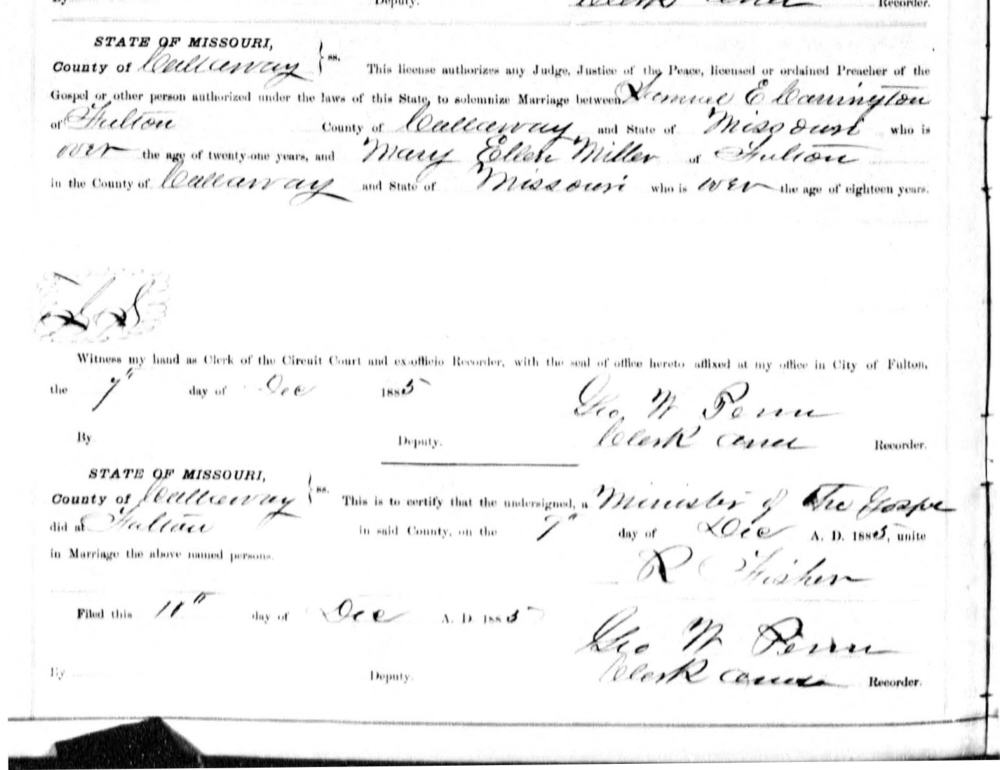 Deputy. Recorder.
STATE OF MISSOURI,
County of Callaway } ss. This license authorizes any Judge, Justice of the Peace, licensed or ordained Preacher of the
Gospel or other person authorized under the laws of this State, to solemnize Marriage between Samuel E Carrington
of Fulton County of Callaway and State of Missouri who is
over the age of twenty-one years, and Mary Ellen Miller of Fulton
in the County of Callaway and State of Missouri who is over the age of eighteen years.
Witness my hand as Clerk of the Circuit Court and ex-officio Recorder, with the seal of office hereto affixed at my office in City of Fulton,
the 7" day of Dec 1885
Geo W Penn
By Deputy. Clerk Recorder.
STATE OF MISSOURI,
County of Callaway } ss. This is to certify that the undersigned, a Minister of The Gospel
did at Fulton in said County, on the 7" day of Dec A. D. 1885, unite
in Marriage the above named persons.
R Fisher
Filed this day of Dec A. D. 1885
Geo W Penn
By Deputy. Clerk Recorder.